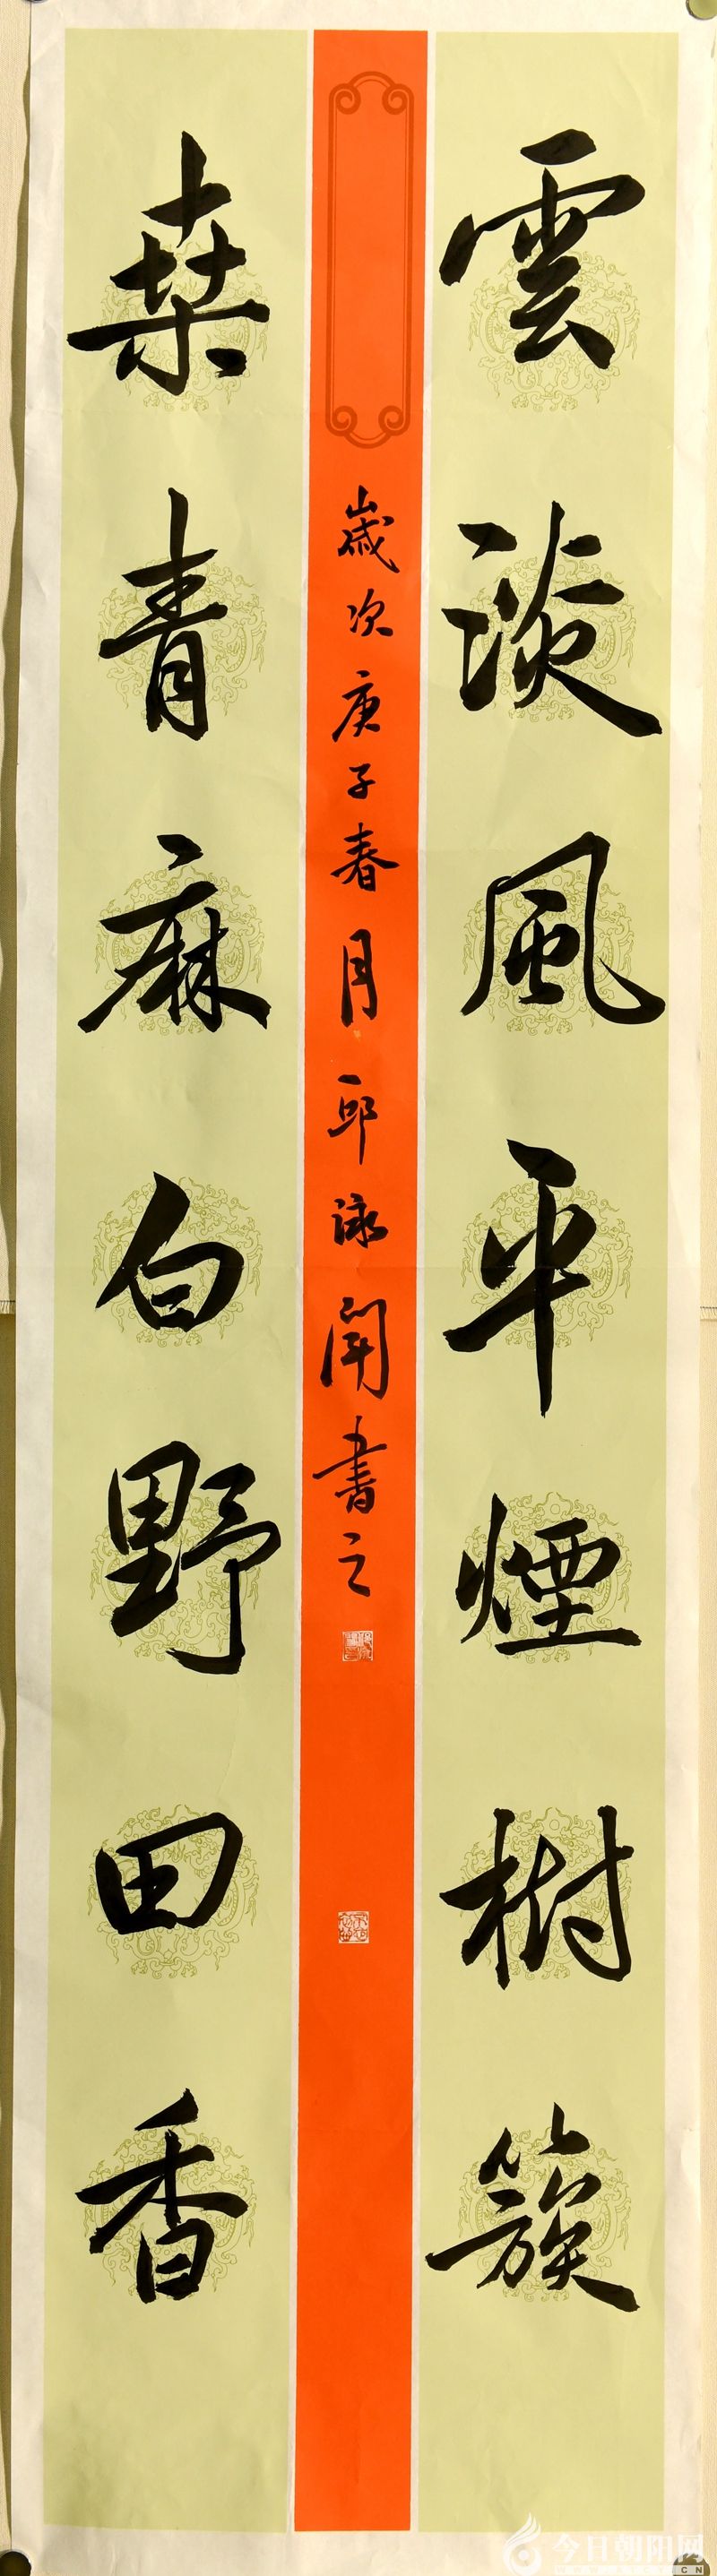 雲淡風平煙樹簇
歲次庚子春月邱泳開書之
桒青麻白野田香
今日朝阳网